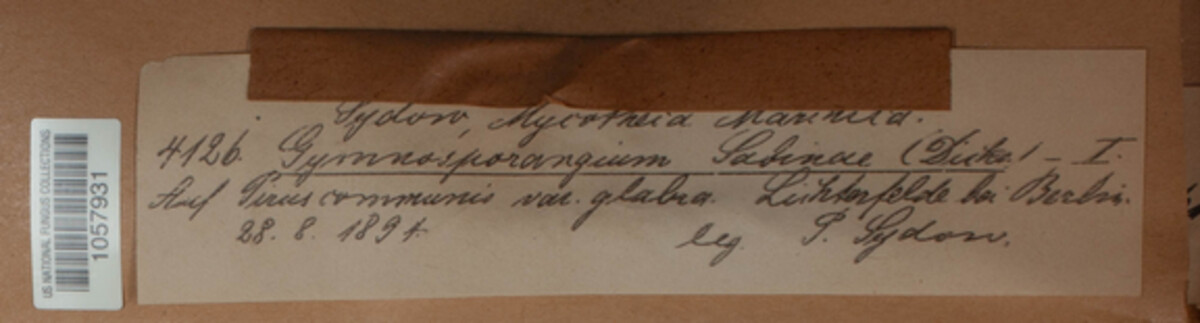 US NATIONAL FUNGUS COLLECTIONS
1057931
Sydow, Mycotheca Marchica.
4126. Gymnosporangium Sabinae (Dicks.) – I.
Auf Pirus communis var. glabra. Lichterfelde bei Berlin.
28. 8. 1891.
leg. P. Sydow.